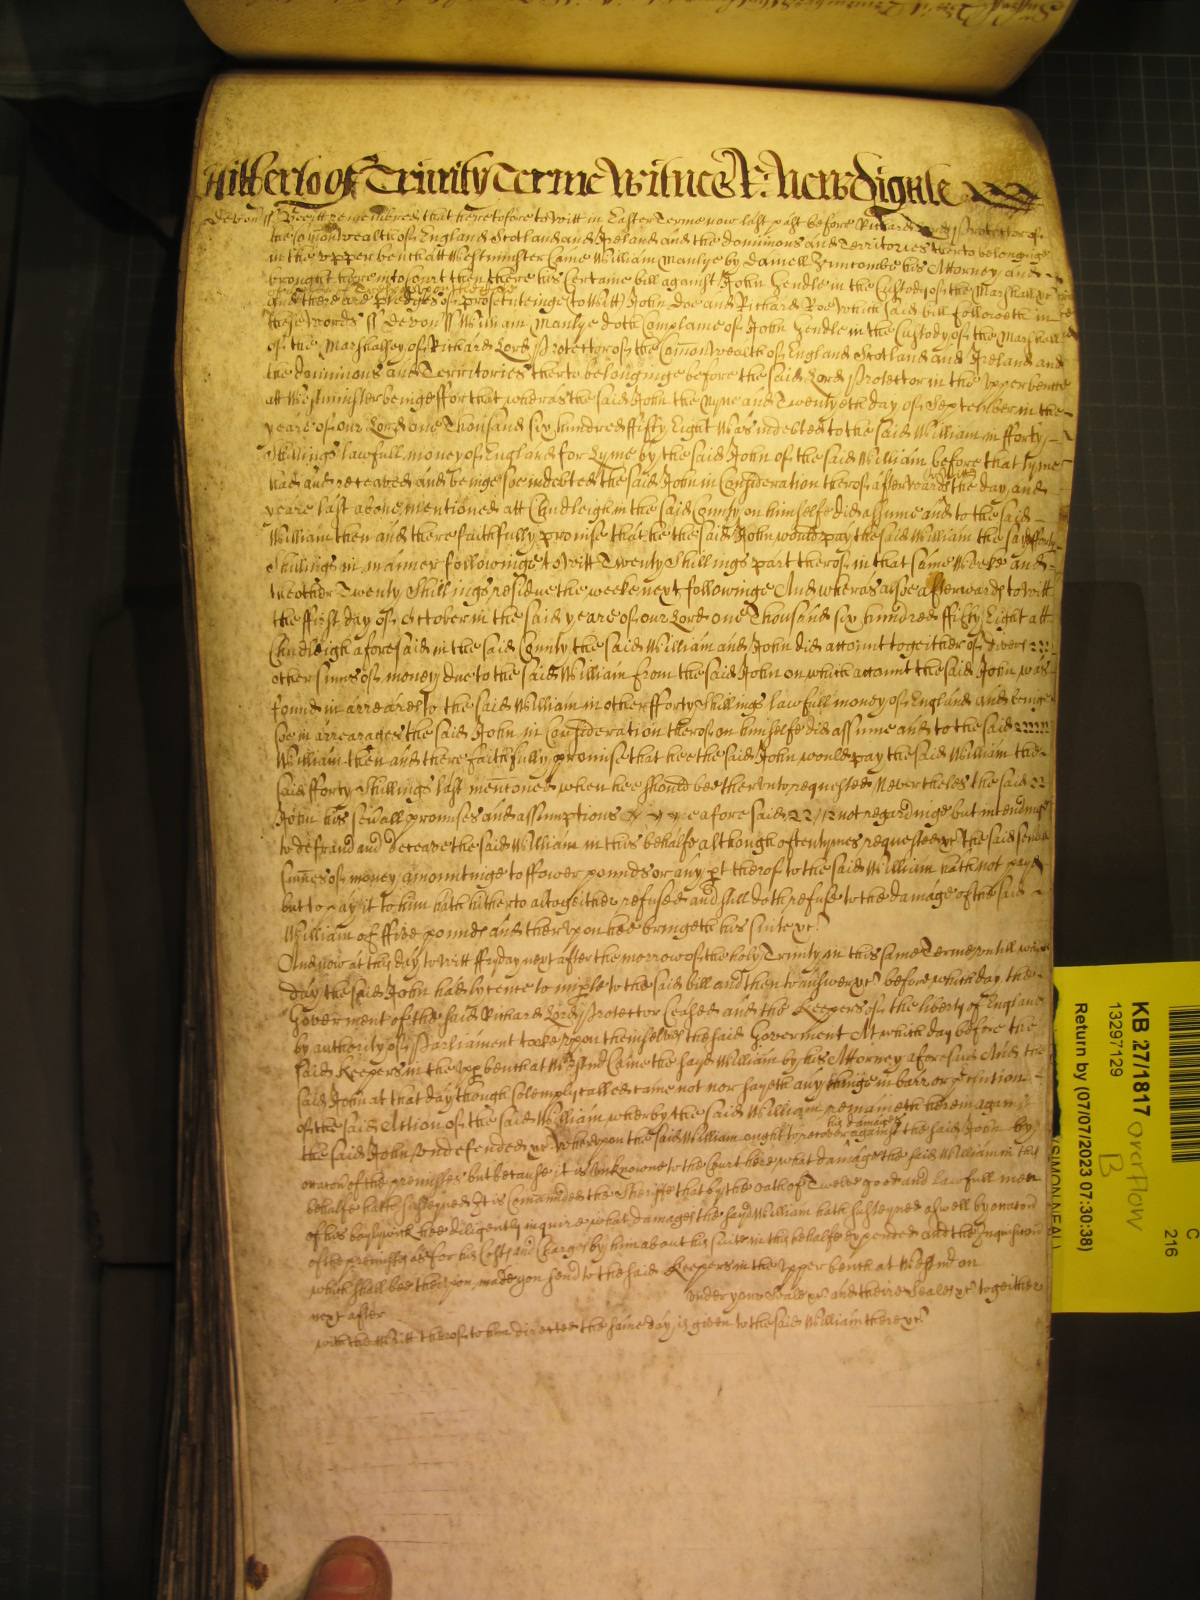 Hitherto of Trinity Terme Witnes R: Newdigate
Devon ss Bee itt remembred that heretofore to witt in Easter Terme now last past before Richard Lord Protector of
the Com̄onwealth of England Scotland and Ireland and the dominions and Territories therto belonginge
in the upper bench att Westminster came William Manlye by Daniell his Attorney and
brought here into Court then there his certaine bill against John Hendle in the Custody of the Marshall &c
and there are pledges of prosecuteinge (to Witt) John Doe and Richard Roe which said bill followeth in
these words ss Devon ss William Manlye doth Complaine of John Hendle in the Custody of the Marshall
of the Marshalsey of Richard Lord Protector of the Com̄onwealth of England Scotland and Ireland and
the dominions and Territories therto belonginge before the said Lord Protector in the upper bench
att Westminster beinge ffor that wheras the said John the Nyne and Twentyeth day of September in the
yeare of our Lord one Thousand six hundred ffifty Eight Was indebted to the said William in fforty
shillings lawfull money of England for Lyme by the said John of the said William before that tyme
had and receaved and beinge soe indebted the said John in Consideration therof afterwards the day and
yeare last above mentioned att Chudleigh in the said County on himselfe did assume and to the said
William then and there faithfully promise that he the said John would pay the said William the said fforty
shillings in manner followinge to Witt Twenty shillings part therof in that same Weeke and
the other Twenty shillings residue the weeke next followinge And wheras alsoe afterwards to Witt
the first day of October in the said yeare of our Lord one Thousand six hundred ffifty Eight att
Chudleigh aforesaid in the said County the said William and John did accompt togeither of divers
other sum̄es of money due to the said William from the said John on which accompt the said John was
found in arreares to the said William in other fforty shillings lawfull money of England and beinge
soe in arrearages the said John in Consideration therof on himselfe did assume and to the said
William then and there faithfully promise that hee the said John would pay the said William the
said fforty shillings last mentioned when hee should bee therunto requested Nevertheles the said
John his sev̄all promises and assumptions aforesaid not regardinge but intendinge
to defraud and deceave the said William in this behalfe although oftentymes requested &c the said severall
sum̄es of money amountinge to ffower pounds or any pt therof to the said William hath not payd
but to pay it to him hath hitherto altogeither refused and still doth refuse to the damage of the said
William of ffive pounds and therupon hee bringeth his suite &c
And now at this day to Witt ffryday next after the morrow of the holy Trinity in this same Terme untill which
day the said John had lycence to imparle to the said bill and then to answer &c before which day the
Goverment of the said Richard Lord Protector ceased and the Keepers of the liberty of England
by authority of Parliament tooke upon themselves the said Goverment At which day before the
said Keepers in the upper bench at Westm̄ Came the said William by his Attorney aforesaid And the
said John at that day though solemply called came not nor sayeth any thinge in barr or p̄clution
of the said Action of the said William wherby the said William remaineth herein against
the said John undefended &c Wherupon the said William ought to recover his damages against the said John by
occasion of the premisses but because it is unknowne to the Court here what damages the said William in this
behalfe hath susteyned It is Com̄anded the Sheriffe that by the oath of Twelve good and lawfull men
of his baylywick hee diligently inquire what damages the sayd William hath susteyned as well by occasion
of the premisses as for his Costs and Charges by him about his suite in this behalfe expended and the Inquisition
which shall bee therupon made you send to the said Keepers in the upper bench at Westm̄ on
next after under your Seale &c and theire Seales &c togeither
with the Writt therof to him directed the same day is given to the said William there &c
KB 27/1817 overflow
B
13297129
Return by (07/07/2023 07:30:38)
(SIMON NEAL)
C
216